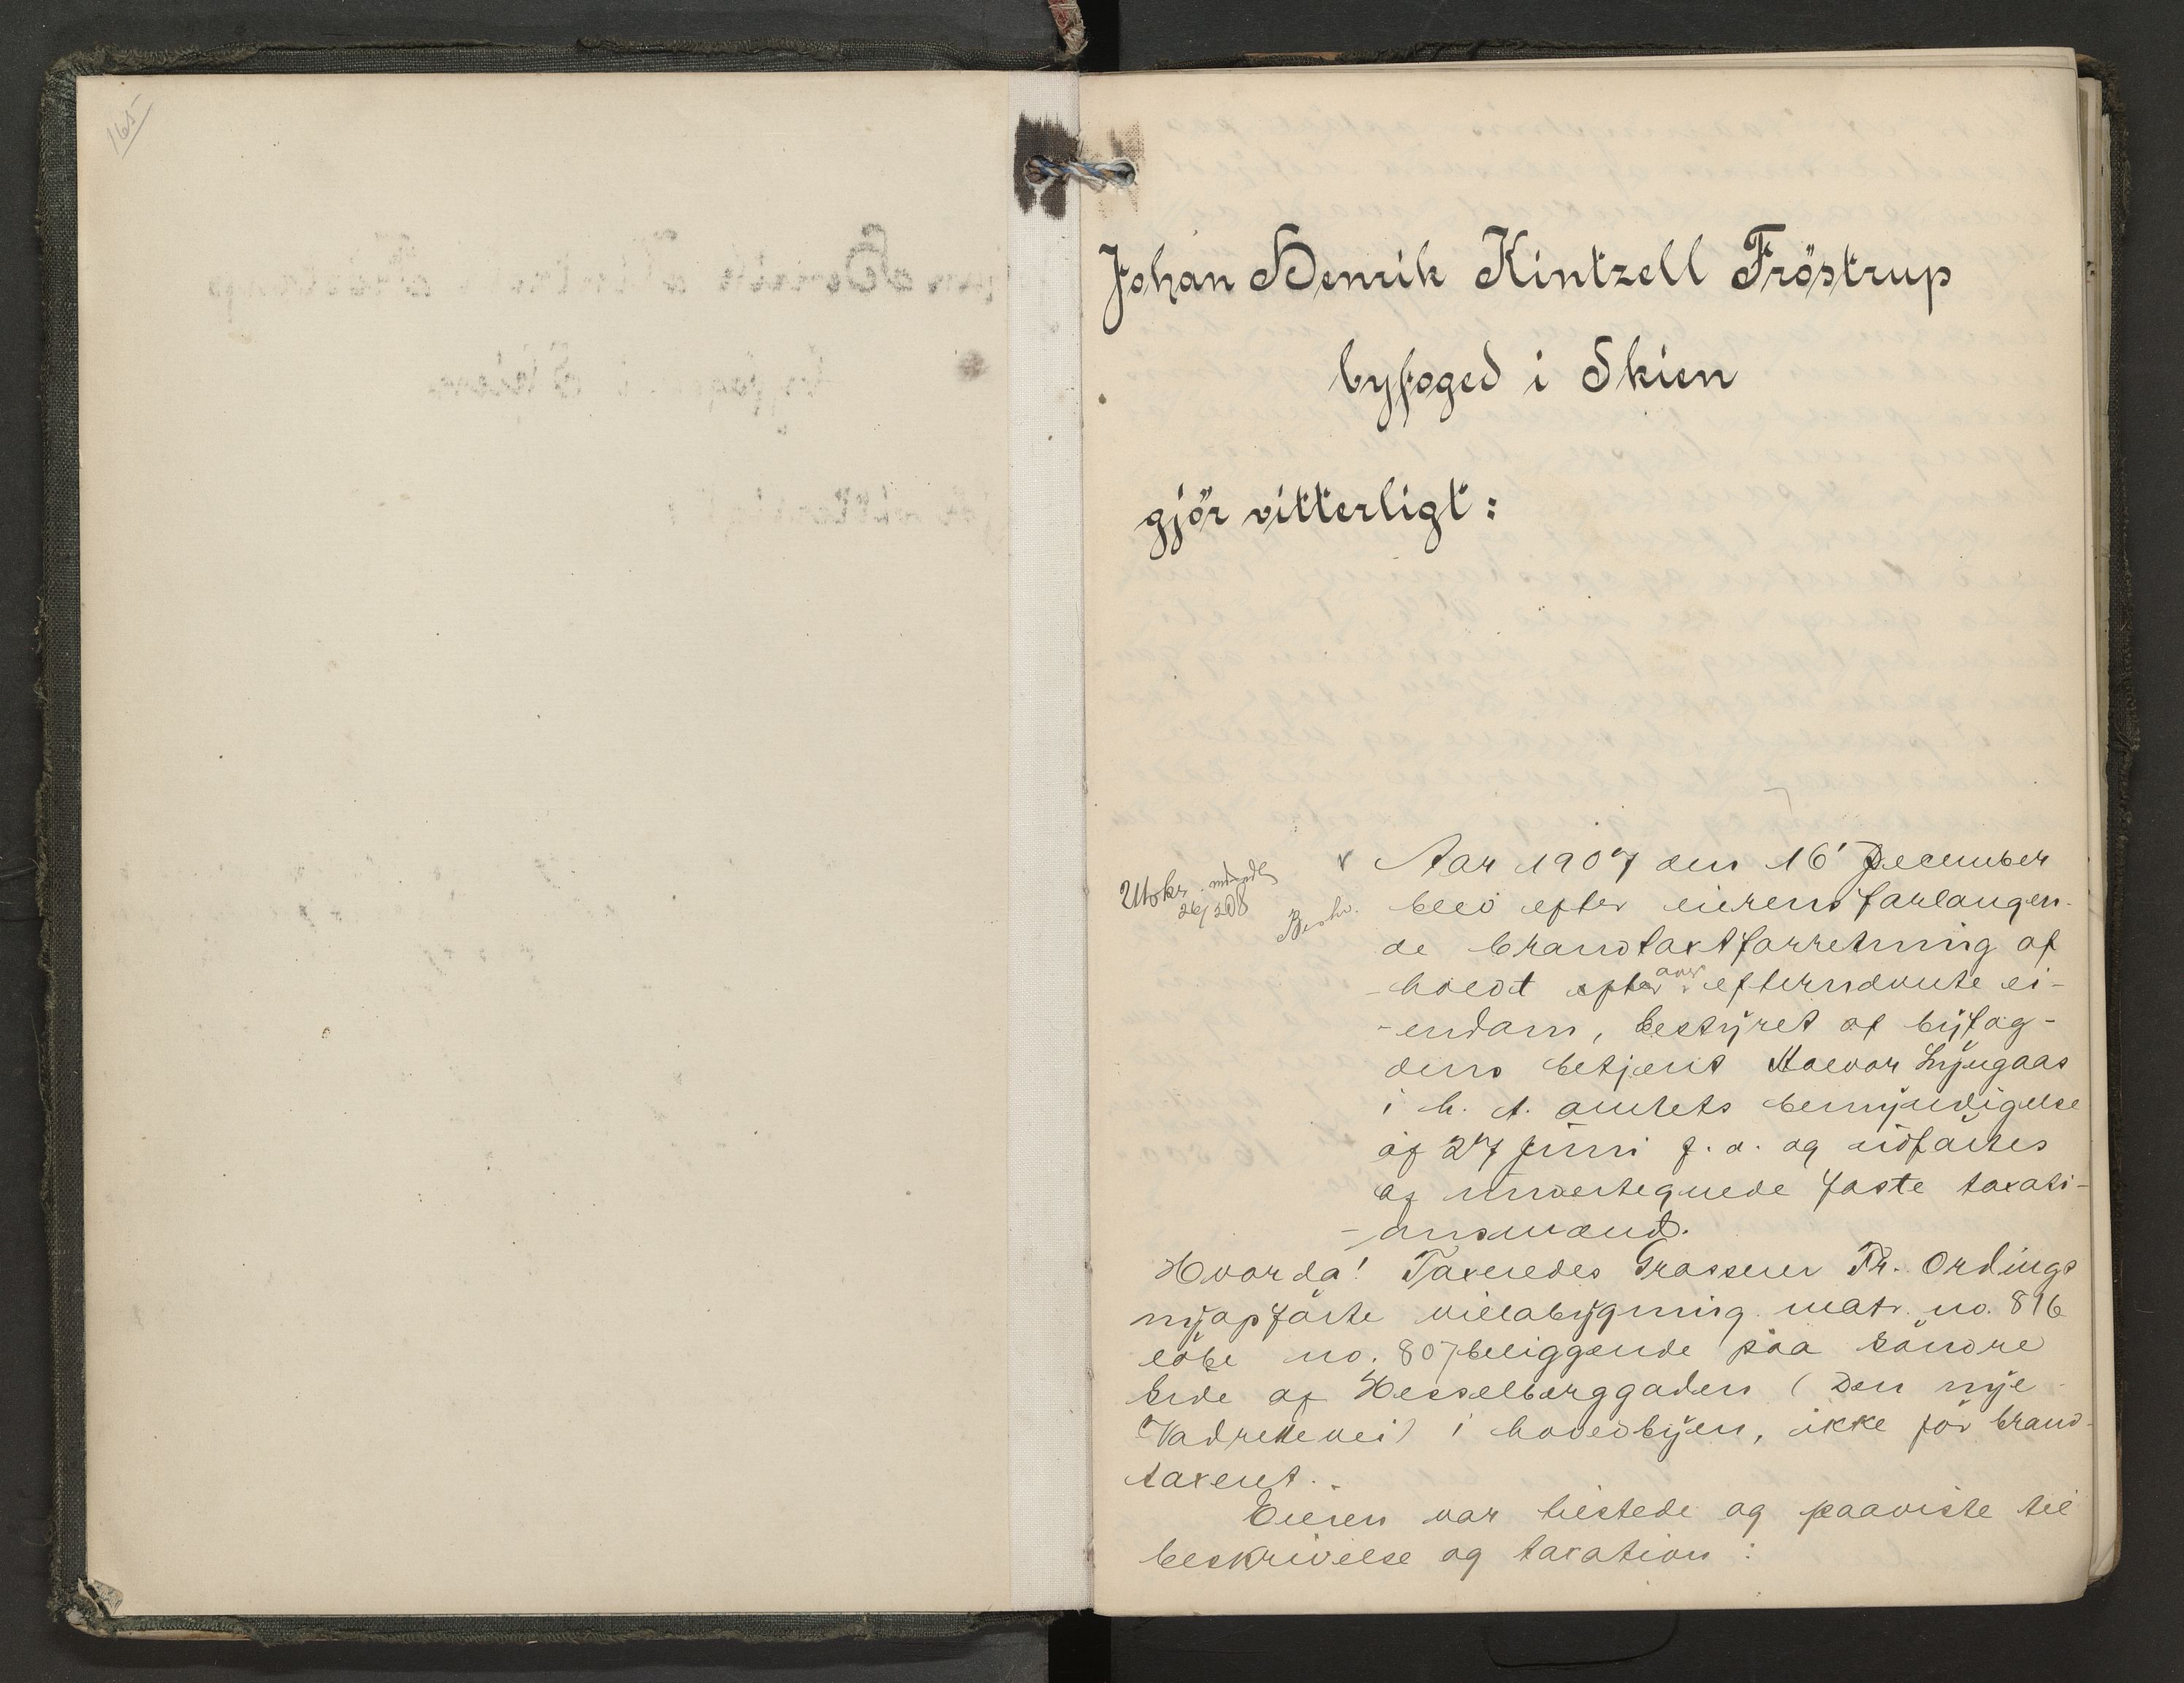 165
Johan Henrik Kintzell Fröstrup
byfoged i Skien
gjör vitterligt:
Aar 1907 den 16' December
blev efter eierens forlangen-
de brandtaxtforretning af-
-holdt efter over efternævnte ei-
-endom, bestyret af byfog-
dens betjent Halvor Lyngaas
i h. t. amtets bemyndigelse
af 27 Juni f. a. og udförtes
af undertegnede faste taxati-
-onsmænd.
Utskr.
26/2 08
Beskr.
Hvorda! Taxeredes Grosserer Fr. Ordings
nyopförte villabygning matr. no. 816
löbe no. 807 beliggende paa söndre
side af Hesselberggaden (Den nye
Vadrettevei) i hovedbyen, ikke för brand-
taxeret.
Eieren var tilstede og paaviste til
beskrivelse og taxation: